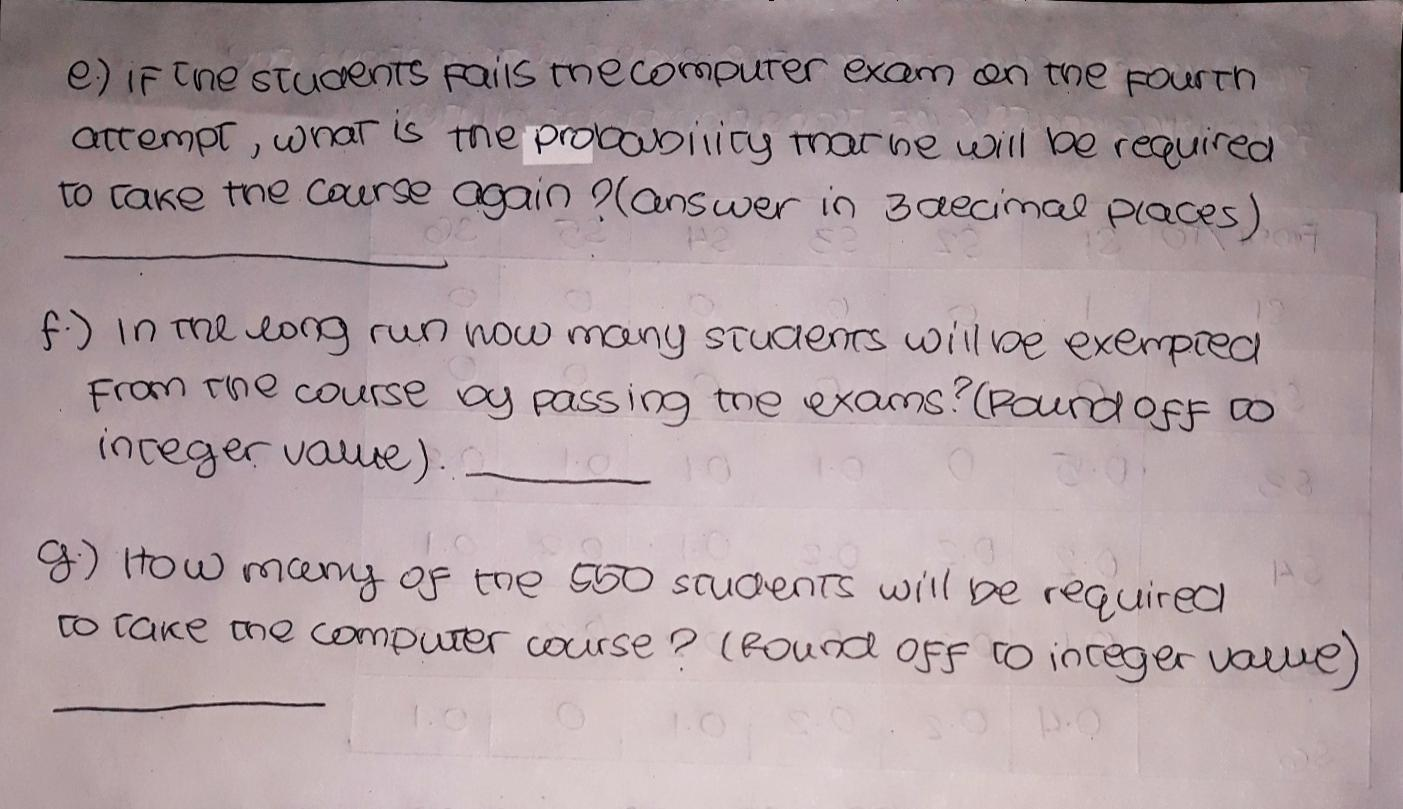 e.) if the students fails the computer exam on the fourth
attempt, what is the probability that he will be required
to take the course again? (answer in 3 decimal places)
f.) In the long run how many students will be exempted
From the course by passing the exams? (Round off to
integer value).
g.) How many of the 550 students will be required
to take the computer course? (Round off to integer value)